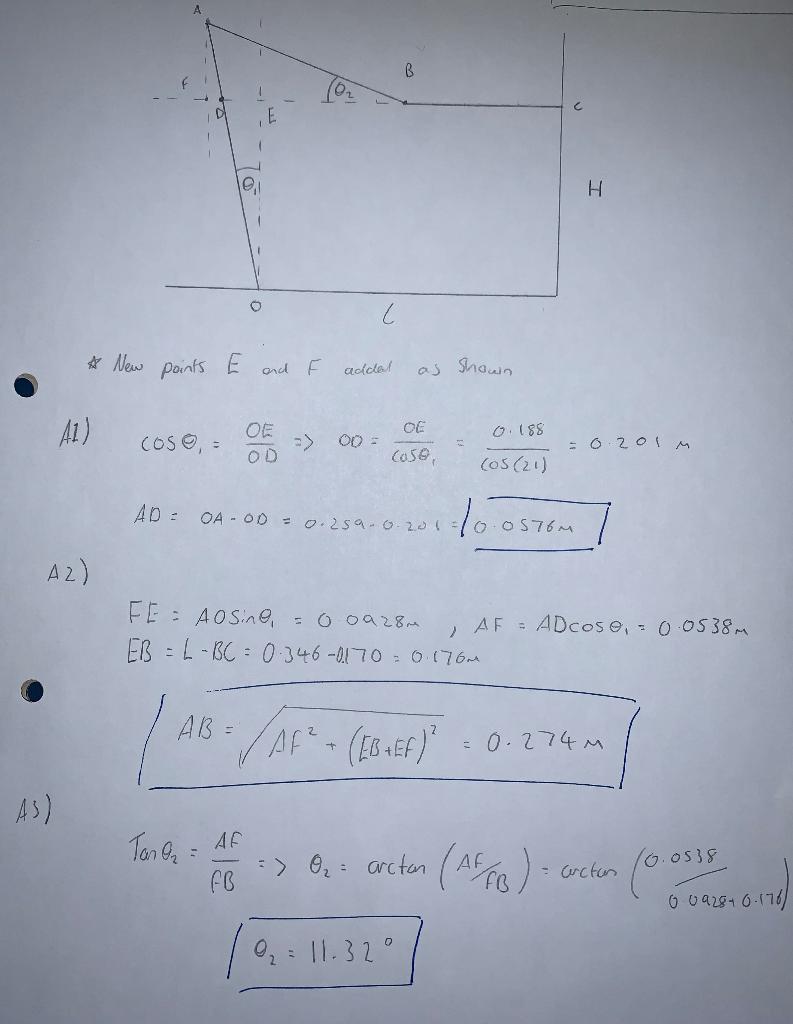 A
B
F
θ₂
D
E
C
θ₁
H
O
L
☆ New points E and F added as shown
A1) cosθ₁ = OE/OD => OD = OE/cosθ₁ = 0.188/cos(21) = 0.201 m
AD = OA - OD = 0.259 - 0.201 = 0.0576m
A2)
FE = AOsinθ₁ = 0.0928m , AF = ADcosθ₁ = 0.0538m
EB = L - BC = 0.346 - 0.170 = 0.176m
AB = √(AF² + (EB+EF)²) = 0.274 m
A3)
Tanθ₂ = AF/FB => θ₂ = arctan (AF/FB) = arctan (0.0538/0.0928+0.176)
θ₂ = 11.32°